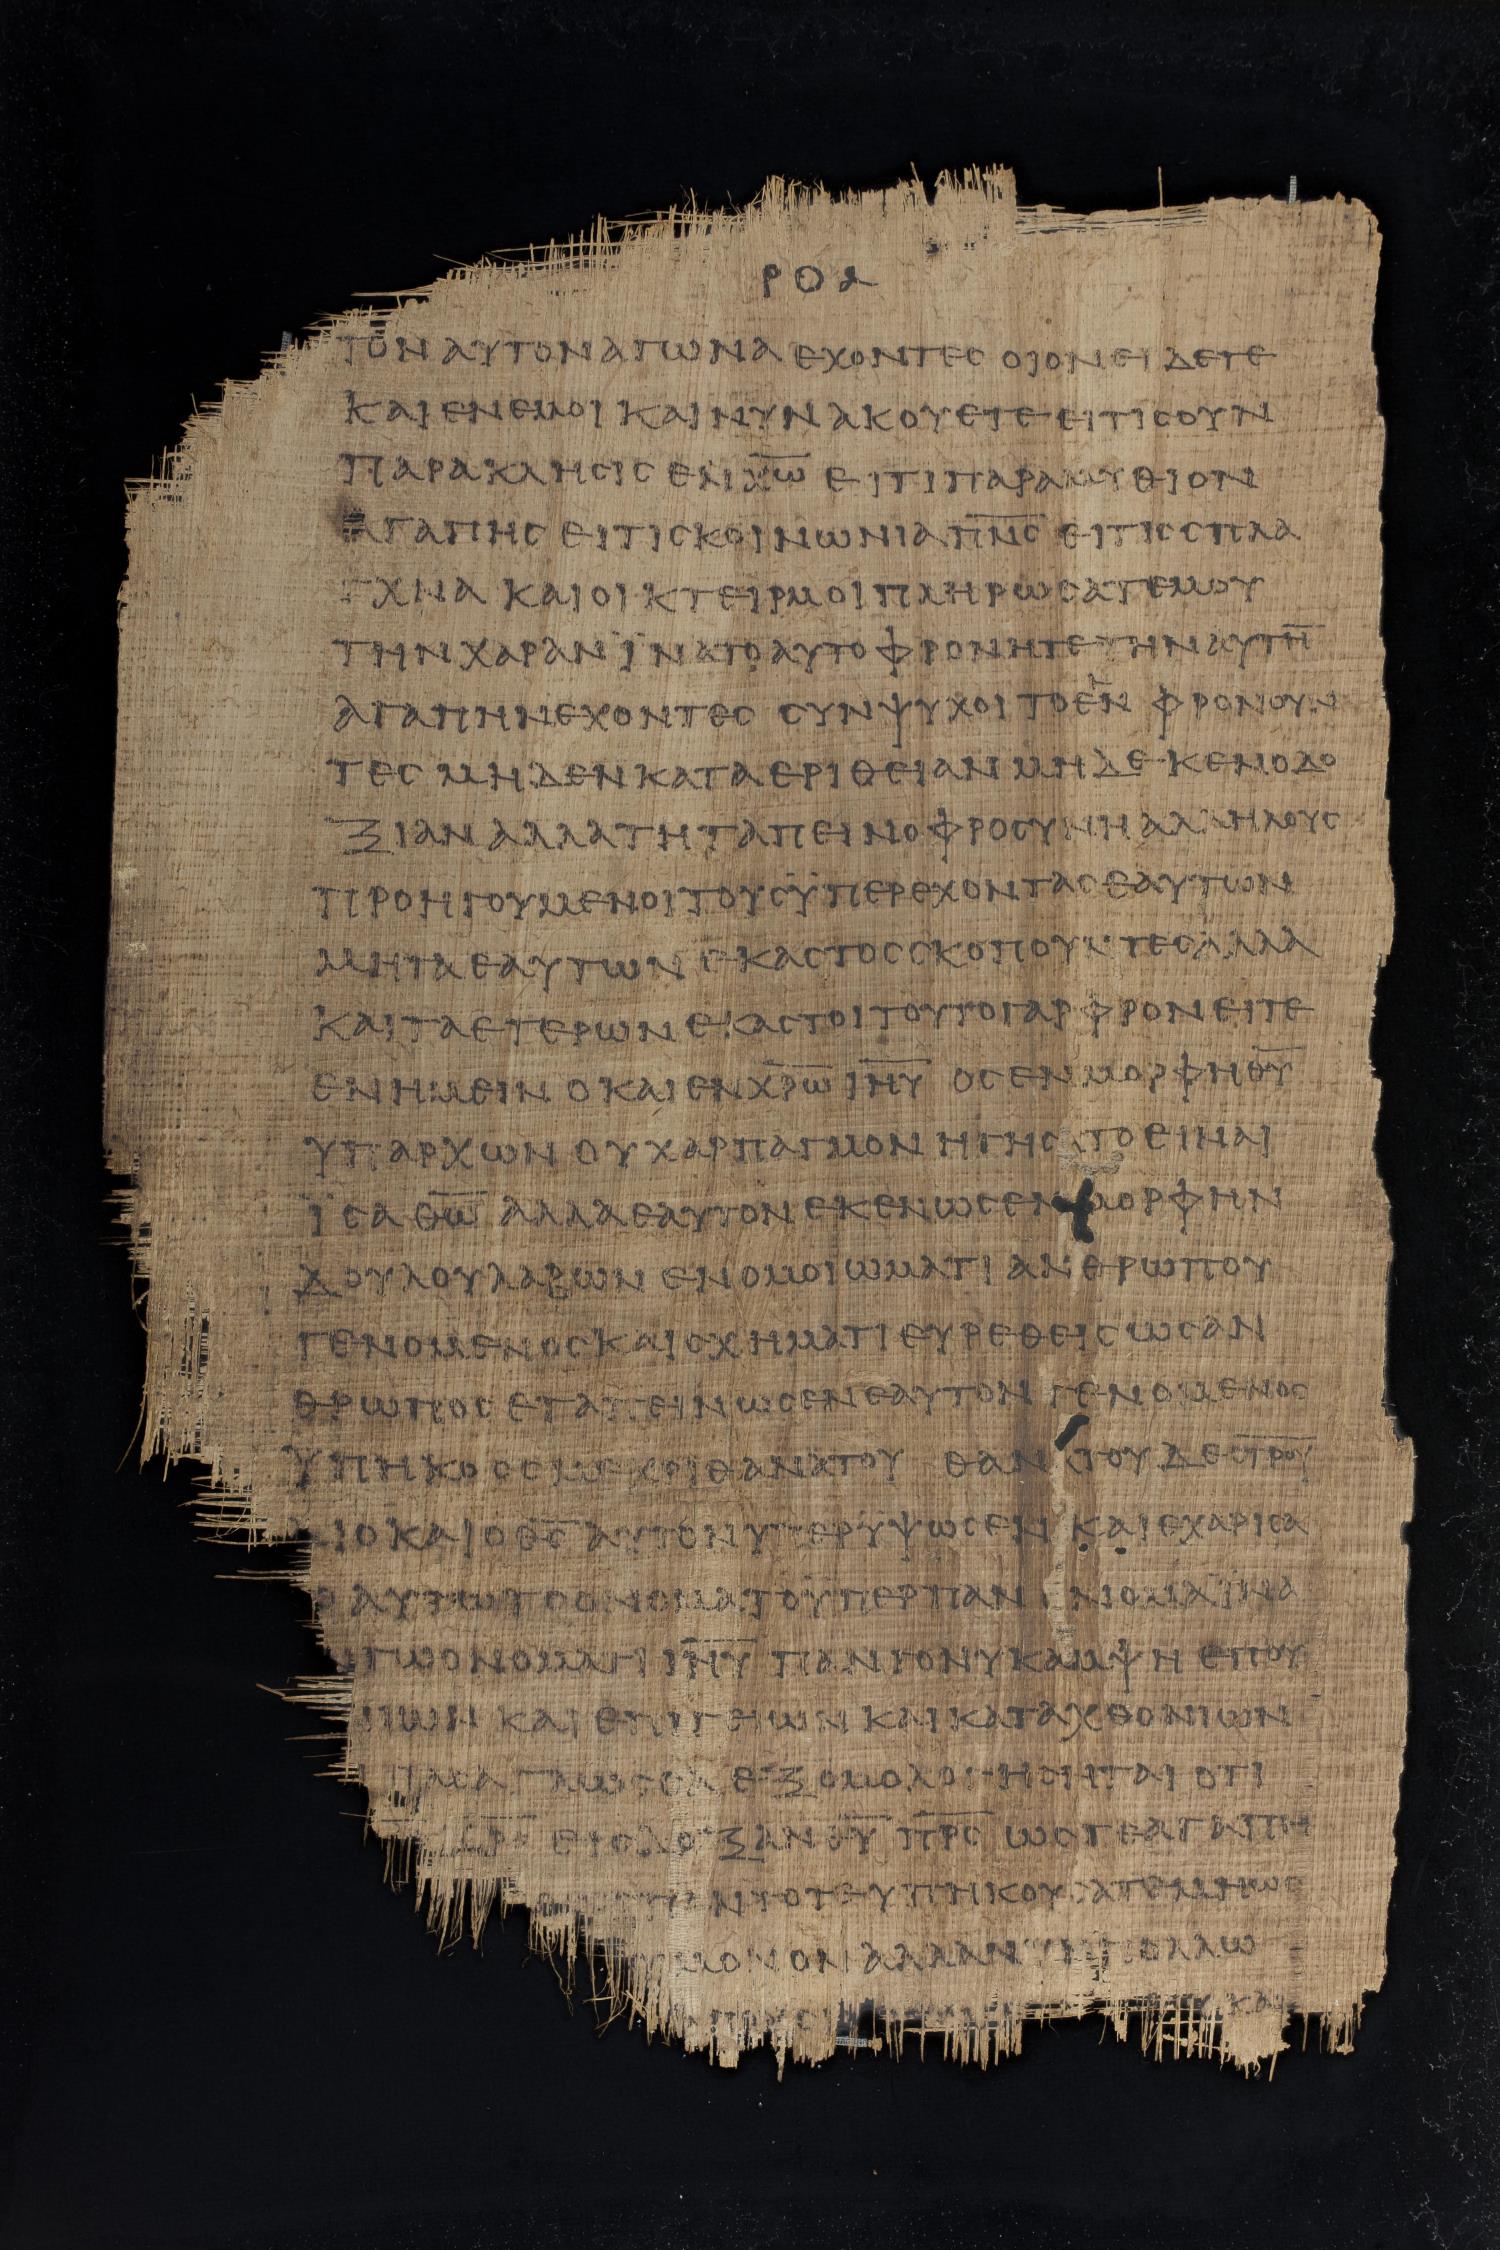 ΡΟΑ
ΤΟΝ ΑΥΤΟΝ ΑΓΩΝΑ ΕΧΟΝΤΕС ΟΙΟΝ ΕΙΔΕΤΕ
ΚΑΙ ΕΝ ΕΜΟΙ ΚΑΙ ΝΥΝ ΑΚΟΥΕΤΕ ΕΙ ΤΙС ΟΥΝ
ΠΑΡΑΚΛΗСΙС ΕΝ Χ̅Ω̅ ΕΙ ΤΙ ΠΑΡΑΜΥΘΙΟΝ
ΑΓΑΠΗС ΕΙ ΤΙС ΚΟΙΝΩΝΙΑ Π̅Ν̅С̅ ΕΙ ΤΙС СΠΛΑ
ΓΧΝΑ ΚΑΙ ΟΙΚΤΕΙΡΜΟΙ ΠΛΗΡΩСΑΤΕ ΜΟΥ
ΤΗΝ ΧΑΡΑΝ ΪΝΑ ΤΟ ΑΥΤΟ ΦΡΟΝΗΤΕ ΤΗΝ ΑΥΤΗ̅
ΑΓΑΠΗΝ ΕΧΟΝΤΕС СΥΝΨΥΧΟΙ ΤΟ ΕΝ ΦΡΟΝΟΥΝ
ΤΕС ΜΗΔΕΝ ΚΑΤΑ ΕΡΙΘΕΙΑΝ ΜΗΔΕ ΚΕΝΟΔΟ
ΞΙΑΝ ΑΛΛΑ ΤΗ ΤΑΠΕΙΝΟΦΡΟСΥΝΗ ΑΛΛΗΛΟΥС
ΠΡΟΗΓΟΥΜΕΝΟΙ ΤΟΥС ΫΠΕΡΕΧΟΝΤΑС ΕΑΥΤΩΝ
ΜΗ ΤΑ ΕΑΥΤΩΝ ΕΚΑСΤΟС СΚΟΠΟΥΝΤΕС ΑΛΛΑ
ΚΑΙ ΤΑ ΕΤΕΡΩΝ ΕΚΑСΤΟΙ ΤΟΥΤΟ ΓΑΡ ΦΡΟΝΕΙΤΕ
ΕΝ ΗΜΕΙΝ Ο ΚΑΙ ΕΝ Χ̅Ρ̅Ω̅ Ι̅Η̅Υ̅ ΟС ΕΝ ΜΟΡΦΗ Θ̅Υ̅
ΥΠΑΡΧΩΝ ΟΥΧ ΑΡΠΑΓΜΟΝ ΗΓΗСΑΤΟ ΕΙΝΑΙ
ΪСΑ Θ̅Ω̅ ΑΛΛΑ ΕΑΥΤΟΝ ΕΚΕΝΩСΕΝ ΜΟΡΦΗΝ
ΔΟΥΛΟΥ ΛΑΒΩΝ ΕΝ ΟΜΟΙΩΜΑΤΙ ΑΝΘΡΩΠΟΥ
ΓΕΝΟΜΕΝΟС ΚΑΙ СΧΗΜΑΤΙ ΕΥΡΕΘΕΙС ΩС ΑΝ
ΘΡΩΠΟС ΕΤΑΠΕΙΝΩСΕΝ ΕΑΥΤΟΝ ΓΕΝΟΜΕΝΟС
ΥΠΗΚΟΟС ΜΕΧΡΙ ΘΑΝΑΤΟΥ ΘΑΝΑΤΟΥ ΔΕ С̅Τ̅Ρ̅ΟΥ
ΔΙΟ ΚΑΙ Ο Θ̅С̅ ΑΥΤΟΝ ΥΠΕΡΥΨΩСΕΝ ΚΑΙ ΕΧΑΡΙСΑ
Ο ΑΥΤΩ ΤΟ ΟΝΟΜΑ ΤΟ ΫΠΕΡ ΠΑΝ ΟΝΟΜΑ ΪΝΑ
ΤΩ ΟΝΟΜΑΤΙ Ι̅Η̅Υ̅ ΠΑΝ ΓΟΝΥ ΚΑΜΨΗ ΕΠΟΥ
ΝΙΩΝ ΚΑΙ ΕΠΙΓΕΙΩΝ ΚΑΙ ΚΑΤΑΧΘΟΝΙΩΝ
ΠΑСΑ ΓΛΩССΑ ΕΞΟΜΟΛΟΓΗСΗΤΑΙ ΟΤΙ
ΕΙС ΔΟΞΑΝ Θ̅Υ̅ Π̅Ρ̅С̅ ΩСΤΕ ΑΓΑΠΗ
ΝΤΟΤΕ ΥΠΗΚΟΥСΑΤΕ ΜΗ ΩС
ΜΟΝΟΝ ΑΛΛΑ ΝΥΝ ΠΟΛΛΩ